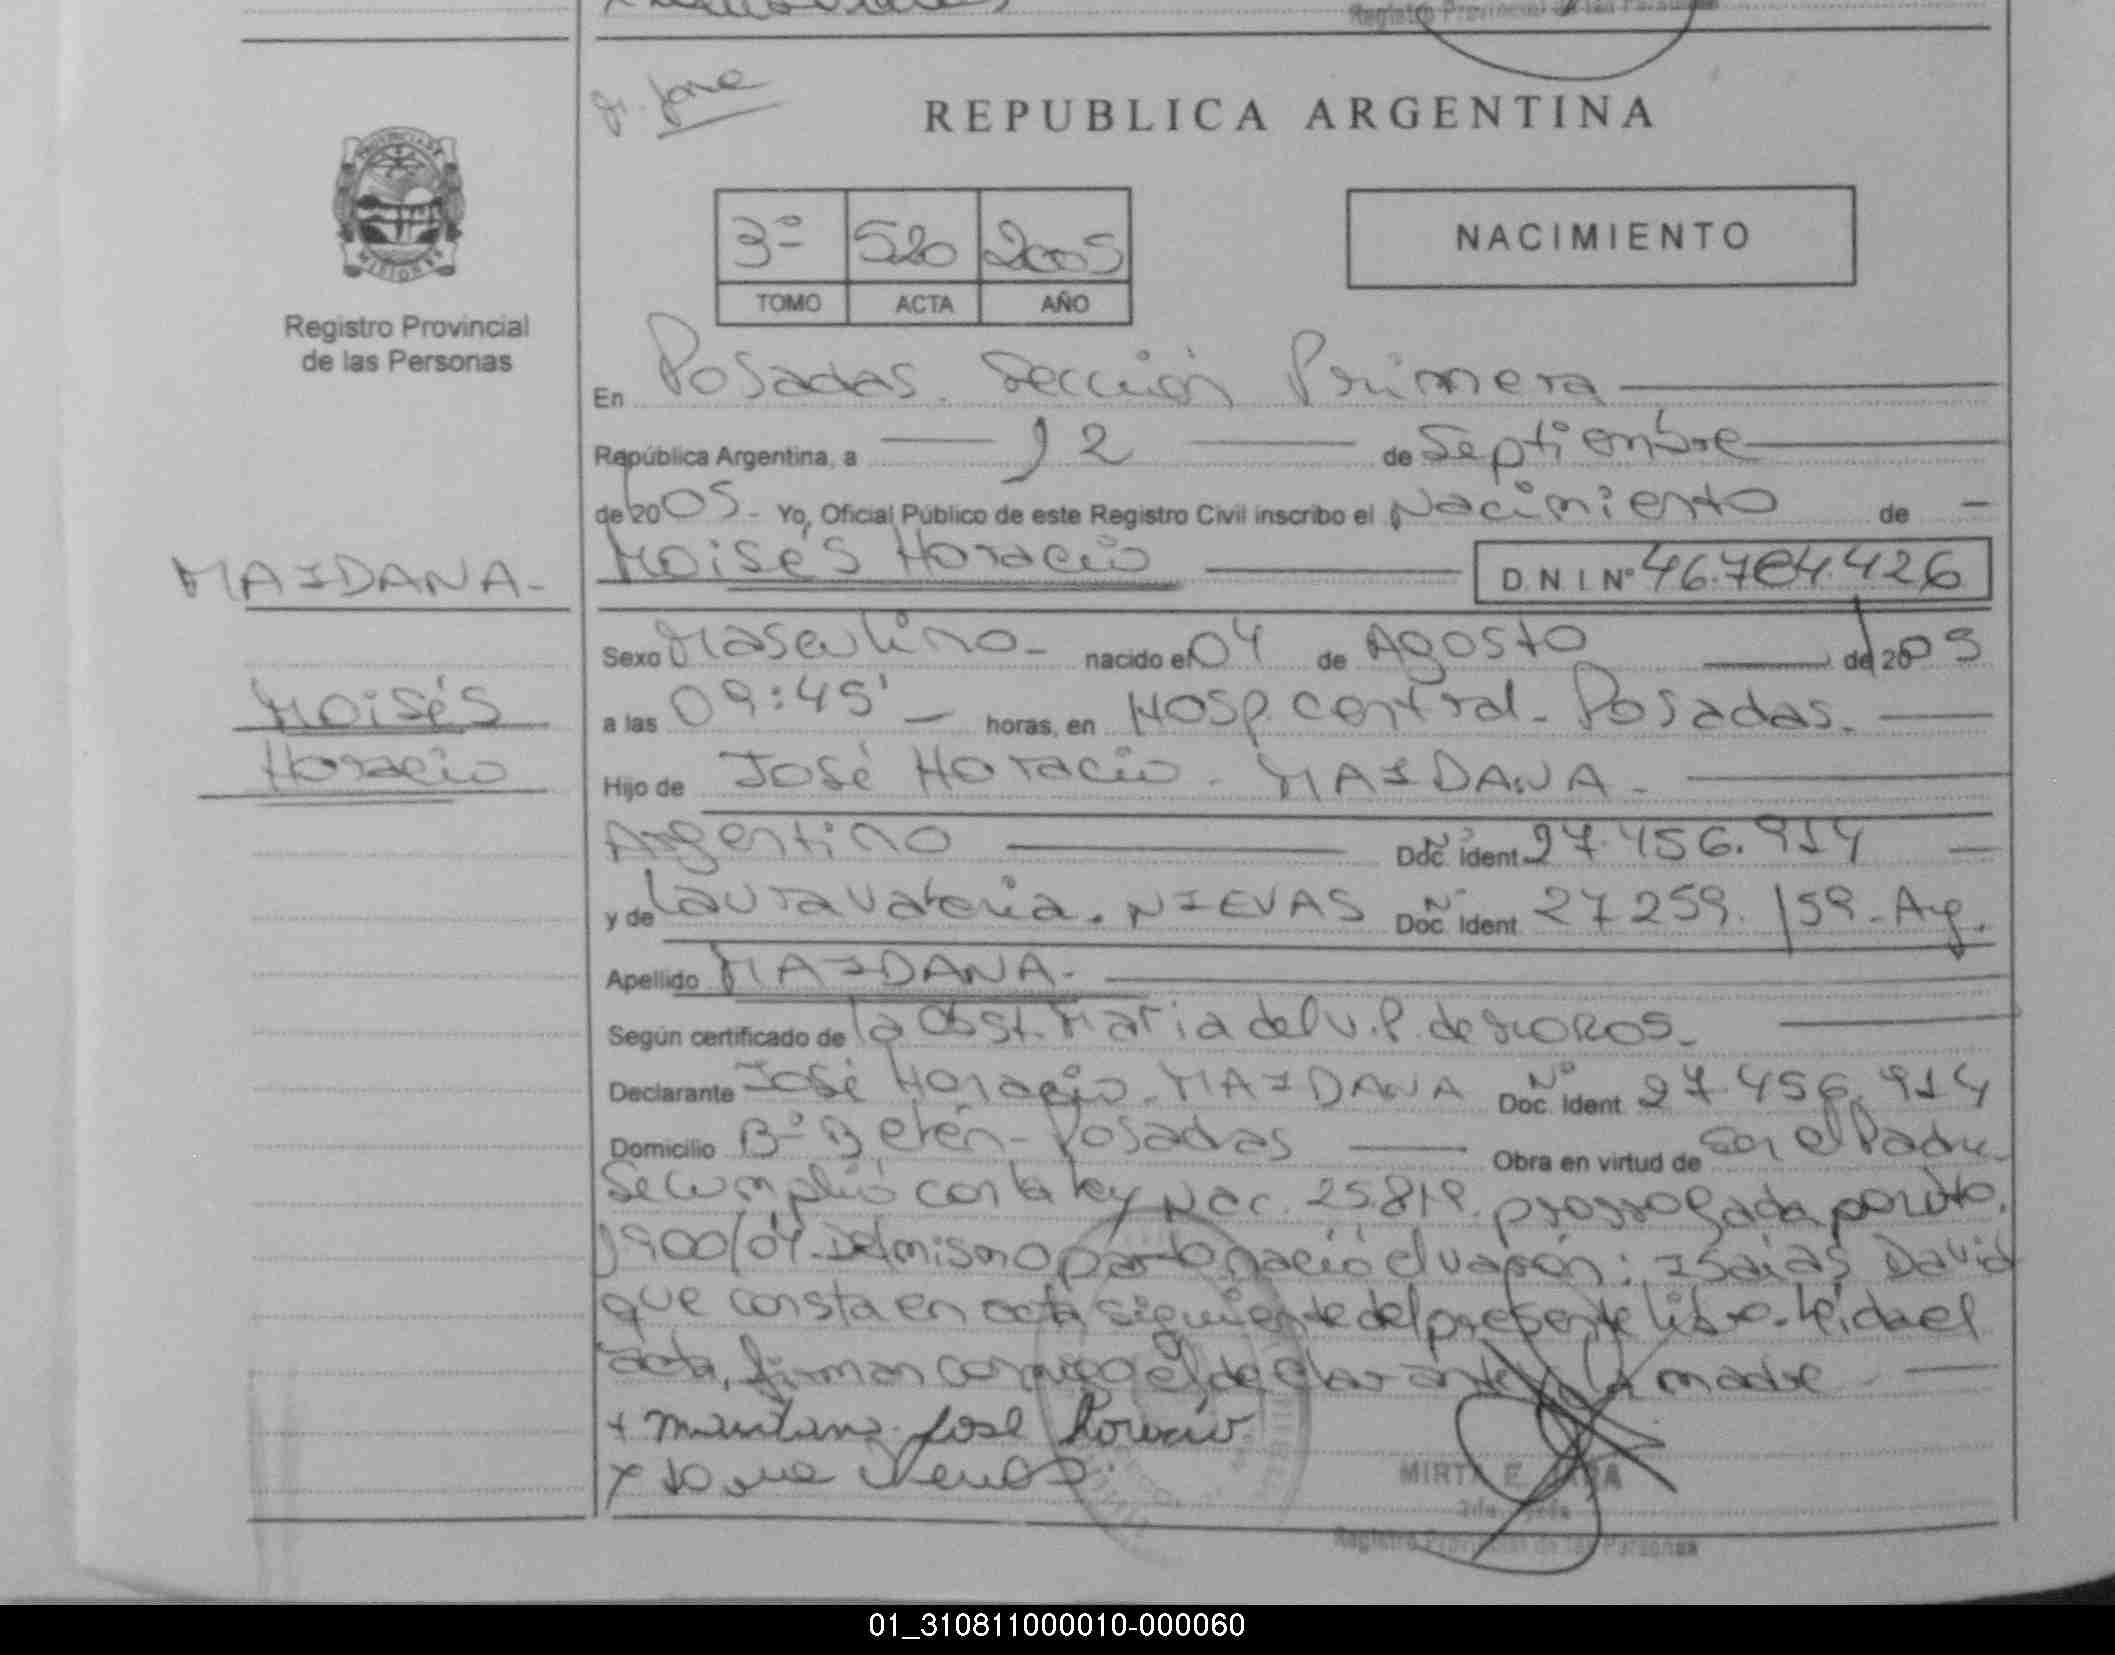 Registro Provincial de las Personas
REPUBLICA ARGENTINA
PROVINCIA DE
MISIONES
Registro Provincial
de las Personas
3º 520 2005
TOMO ACTA AÑO
NACIMIENTO
En Posadas. Sección Primera
República Argentina, a 12 de Septiembre
de 2005 - Yo, Oficial Público de este Registro Civil inscribo el Nacimiento de -
MAIDANA - Moisés Horacio D.N.I. Nº 46.784.426
Sexo Masculino - nacido el 04 de Agosto de 2005
Moisés a las 09:45' - horas, en Hosp. Central - Posadas.
Horacio Hijo de José Horacio - MAIDANA -
Argentino Doc. Ident. Nº 27.456.914
y de Laura Valeria. NIEVAS Doc. Ident. Nº 27 259. 159 - Arg.
Apellido MAIDANA -
Según certificado de la Obst. Maria del V. P. de
Declarante José Horacio - MAIDANA Doc. Ident. Nº 27 456. 914
Domicilio Bº Belén - Posadas Obra en virtud de Ser el Padre -
Se cumplió con la Ley Nac. 25.819. prorrogada por Dto.
1900/04 - Del mismo parto nació el varón: Isaias David
que consta en acta siguiente del presente libro. Leida el
acta, firman conmigo el declarante y la madre
+ Maidana José Horacio
x
MIRTA E.
Registro Provincial de las Personas
01_310811000010-000060